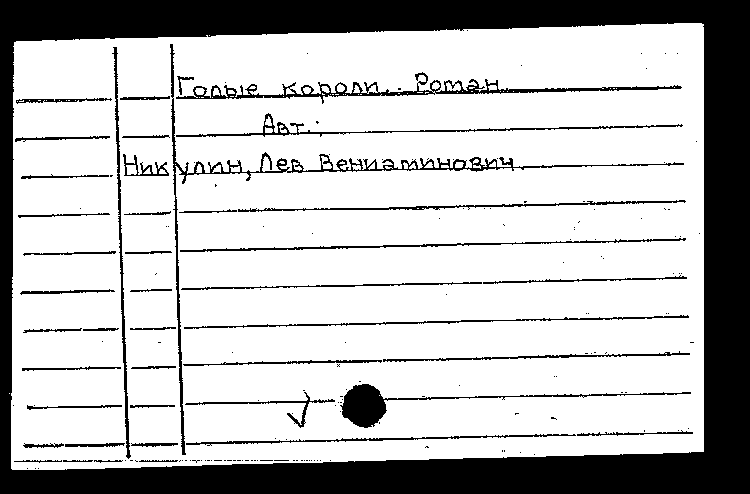 Голые короли.. Роман
Авт.:
Никулин, Лев Вениаминович.